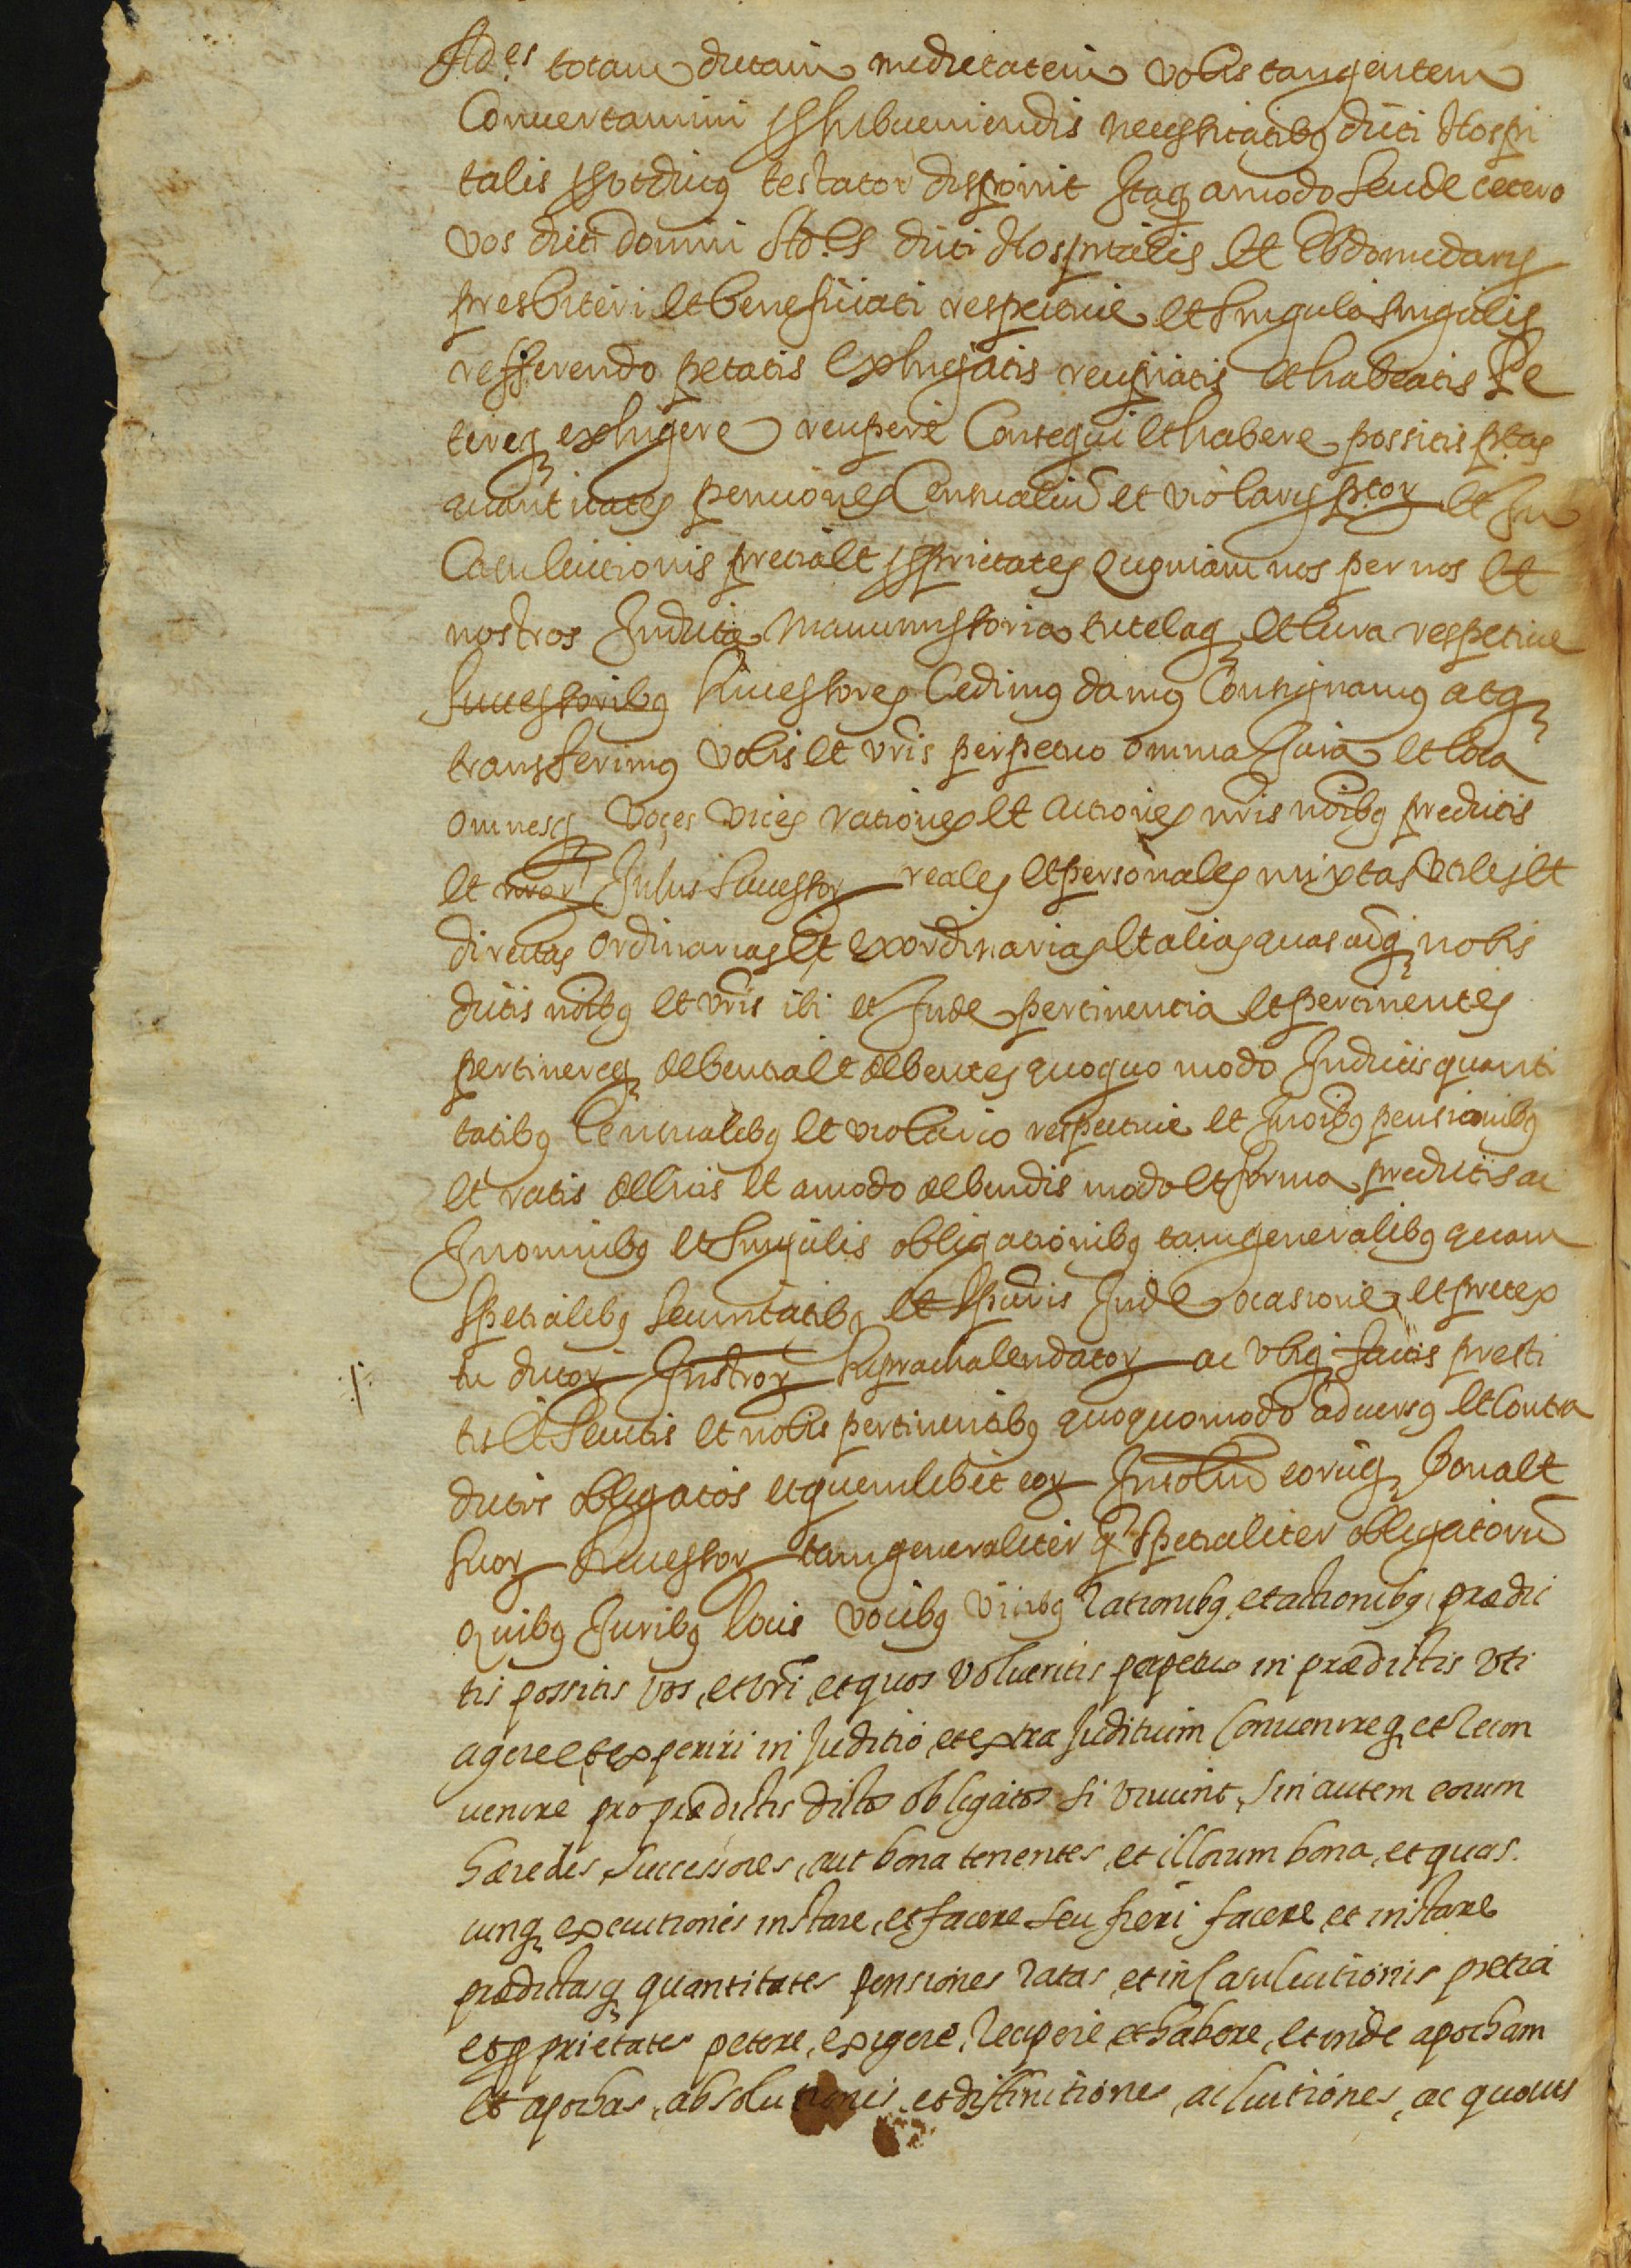 Ad.es totam dictam medietatem vobis tangentem
Convertamini Insubveniendis necessitatibus dicti Hospi
talis prout dictus testator disposuit Itaque amodo seu de cetero
vos dicti domini Ad.es dicti Hospitalis et Ebdomedarij
presbiteri et beneficiati respective et singula singulis
refferendo petatis exhigatis recipiatis et habeatis Pe
tereq exhigere recipere Consequi et habere possitis ptas
quantitates penciones Censualiu et violarij ptor et In
Casu luitionis precia et pprietates Quoniam nos per nos et
nostros In dicta manumissoria tutelaq et cura respective
Successoribus successores Cedimus damus Consignamus atq
transferimus vobis et vris perpetuo omnia Jura et loca
omnesq voces vices rationes et actiones nris noibus predictis
et nror In his successor reales et personales mixtas utiles et
directas ordinarias et exordinarias et alias quascuq nobis
dictis noibus et nris ibi et Inde pertinentia et pertinentes
pertinereq debentia et debentes quoquo modo In dictis quanti
tatibus Censualibus et violario respective et In oibus pensionibus
et ratis debitis et amodo debendis modo et forma predictis ac
In omnibus et singulis obligationibus tam generalibus quam
spetialibus securitatibus et Inde ocasione et pretex
tu dictor Instror supracalendator ac ubiq factis presti
tis et secutis et nobis pertinentibus quoquomodo adversus et Contra
dictos obligatos et quemlibet eor Insolidu eoruq bona et
suor successor tam generaliter q spetialiter obligatoru
Quibus Juribus locis vocibus vicibus rationibus, et actionibus prædic
tis possitis vos, et vri, et quos volueritis perpetuo in prædictis uti
agere et experiri in Juditio, et extra Juditium Convenireq et recon
venire pro prædictis dictos obligatos si vivunt, sin autem eorum
hæredes, successores, aut bona tenentes, et illorum bona, et quas
cunq executiones instare, et facere seu fieri facere, et instare
prædictasq quantitates pensiones ratas, et in Casu luitionis pretia
et pprietates petere, exigere, recipere, et habere, et inde apocham
et apochas, absolutiones, et diffinitiones, ac luitiones, ac quovis